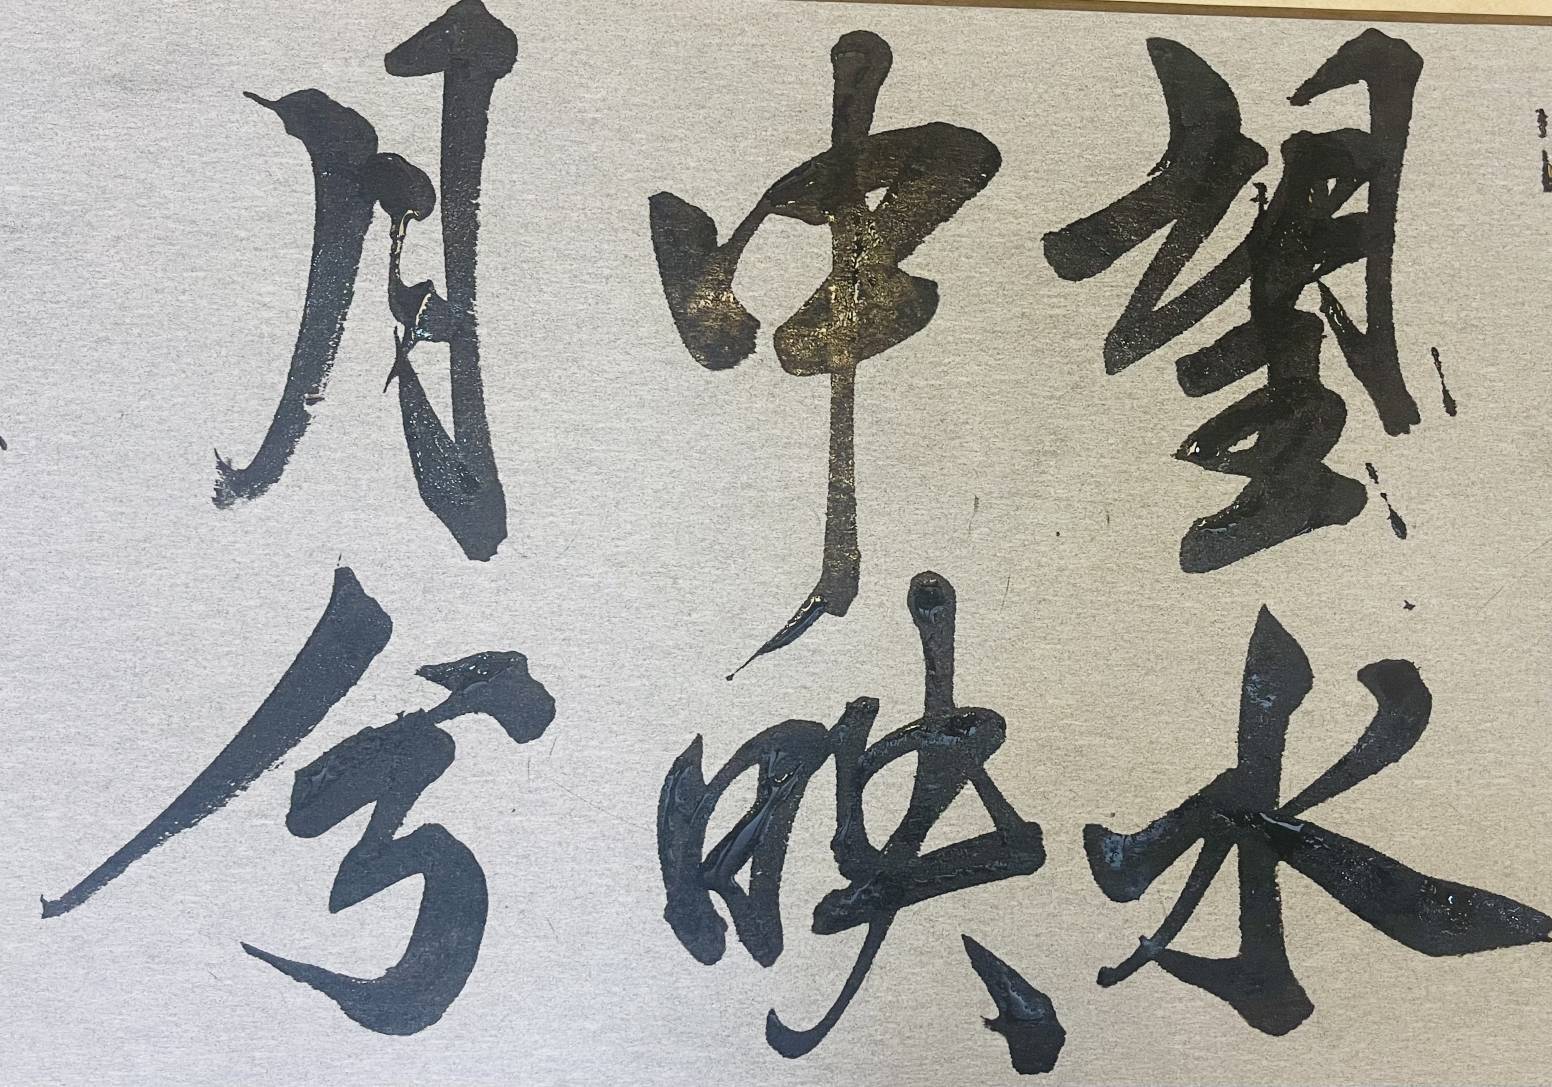 望水
中映
月兮